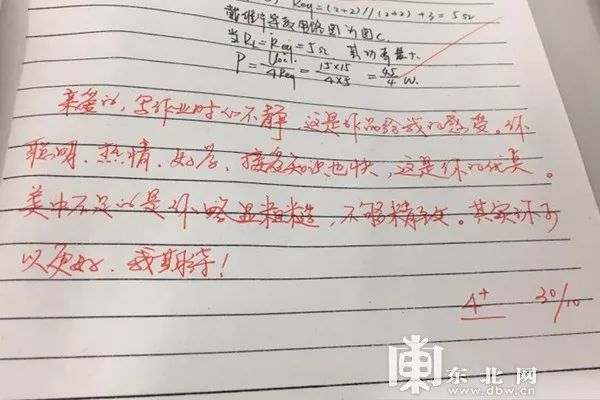 Req=(2+2)//(2+2)+3=5Ω
戴维宁等效电路图为图C.
当RL=Req=5Ω 其功率最大.
P=Uoc²/4Req=15×15/4×5=45/4 W.
亲爱的,写作业时心不静,这是作品给我的感受。你
聪明、热情、好学、接受知识也快,这是你的优点。
美中不足的是你略显粗糙,不够精致。其实你可
以更好,我期待!
4+ 30/10
东北网
www.dbw.cn